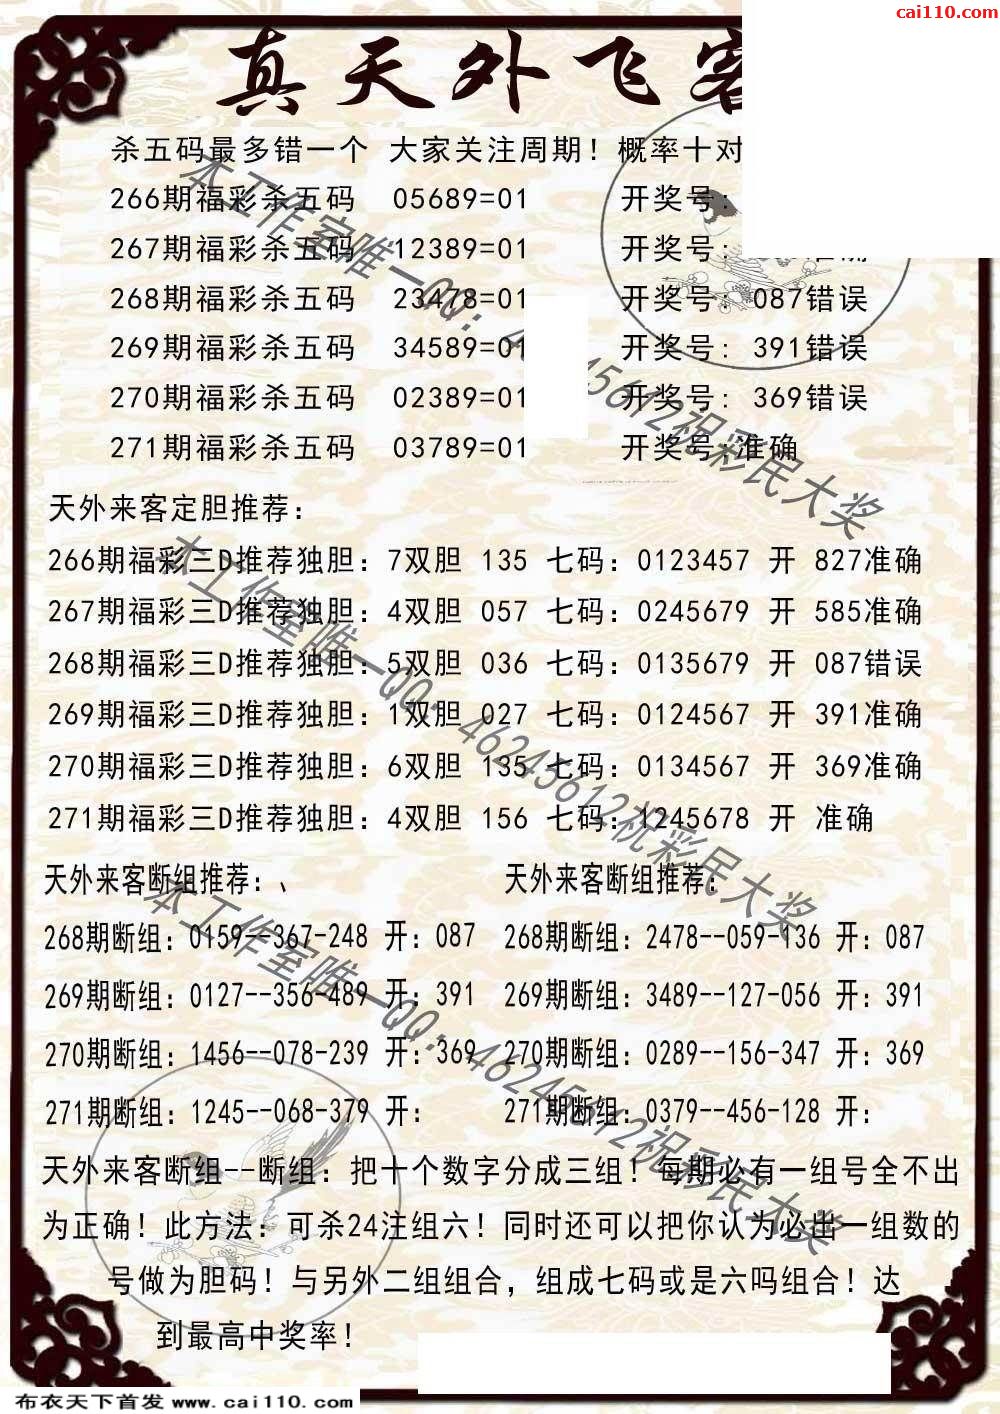 cai110.com
真天外飞客
杀五码最多错一个 大家关注周期！概率十对
266期福彩杀五码 05689=01 开奖号:
267期福彩杀五码 12389=01 开奖号:
268期福彩杀五码 23478=01 开奖号: 087错误
269期福彩杀五码 34589=01 开奖号: 391错误
270期福彩杀五码 02389=01 开奖号: 369错误
271期福彩杀五码 03789=01 开奖号:准确
天外来客定胆推荐:
266期福彩三D推荐独胆: 7双胆 135 七码: 0123457 开 827准确
267期福彩三D推荐独胆: 4双胆 057 七码: 0245679 开 585准确
268期福彩三D推荐独胆: 5双胆 036 七码: 0135679 开 087错误
269期福彩三D推荐独胆: 1双胆 027 七码: 0124567 开 391准确
270期福彩三D推荐独胆: 6双胆 135 七码: 0134567 开 369准确
271期福彩三D推荐独胆: 4双胆 156 七码: 1245678 开 准确
天外来客断组推荐:、 天外来客断组推荐:
268期断组: 0159--367-248 开: 087 268期断组: 2478--059-136 开: 087
269期断组: 0127--356-489 开: 391 269期断组: 3489--127-056 开: 391
270期断组: 1456--078-239 开: 369 270期断组: 0289--156-347 开: 369
271期断组: 1245--068-379 开: 271期断组: 0379--456-128 开:
天外来客断组--断组: 把十个数字分成三组！每期必有一组号全不出
为正确！此方法: 可杀24注组六！同时还可以把你认为必出一组数的
号做为胆码！与另外二组组合，组成七码或是六吗组合！达
到最高中奖率！
本工作室唯一QQ: 46245612祝彩民大奖
本工作室唯一QQ: 46245612祝彩民大奖
本工作室唯一QQ: 46245612祝彩民大奖
布衣天下首发 www.cai110.com